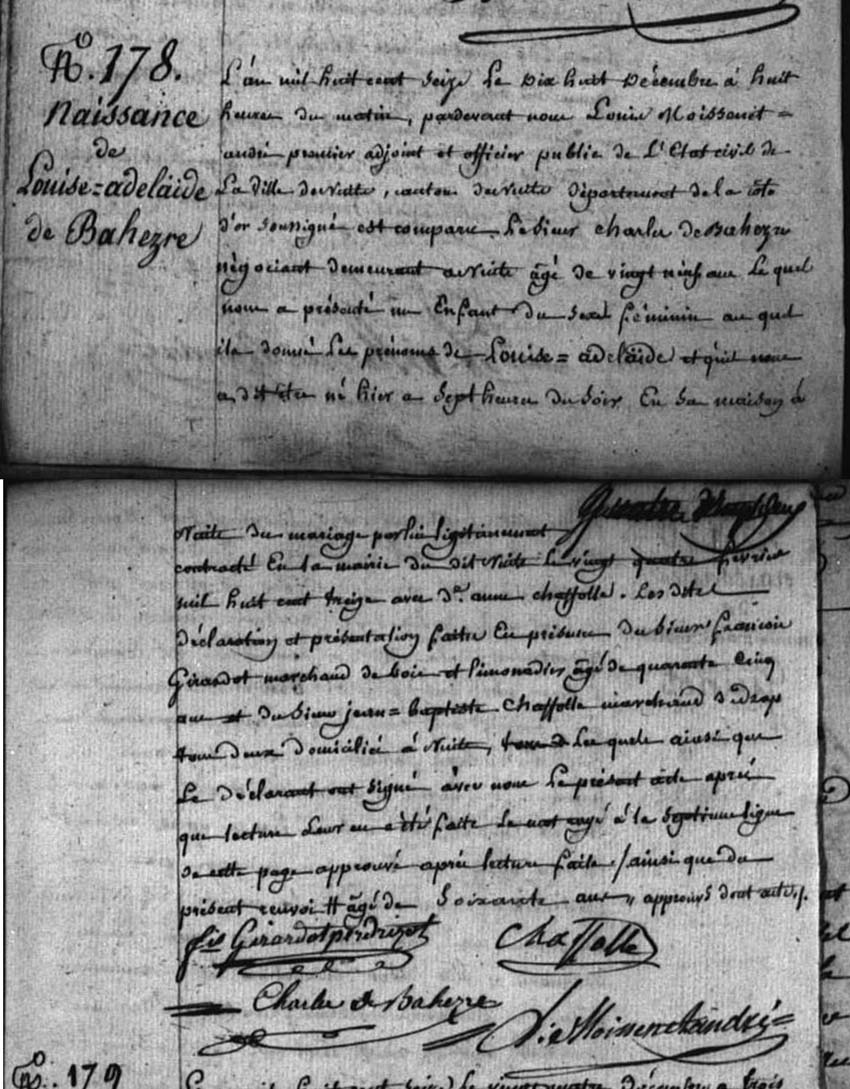 No. 178.
Naissance
de
Louise=adelaïde
de Bahezre
L'an mil huit cent seize Le Dix huit Décembre à huit
heures du matin, pardevant nous Louis Moissenet=
andré premier adjoint et officier public de L'Etat civil de
La ville de Nuits, canton de Nuits département de la côte
d'or soussigné est comparu Le Sieur charles de Bahezre
négociant demeurant a Nuits âgé de vingt neuf ans Le quel
nous a présenté un Enfant du sexe féminin au quel
il a donné Les prénoms de Louise=adelaïde et qu'il nous
a dit être né hier a Sept heures du Soir En Sa maison à
Nuits du mariage par lui légitimement
contracté En la mairie du dit Nuits Le vingt quatre fevrier
mil huit cent treize avec De. anne chaffotte. Les dites
déclaration et présentation faites En présence du Sieur francois
Girardot marchand de bois et limonadier âgé de quarante cinq
ans et du Sieur jean=baptiste Chaffotte marchand de drap
tous deux domiciliés à Nuits, Les quels ainsi que
Le déclarant ont signé avec nous Le présent acte après
que lecture Leur en a été faite Le mot rayé à la Septieme ligne
de cette page approuvé après lecture faite / ainsi que du
présent renvoi # âgé de Soixante ans, approuvé dont acte /.
fis Girardot
Chaffotte
Charles de Bahezre
No. 179